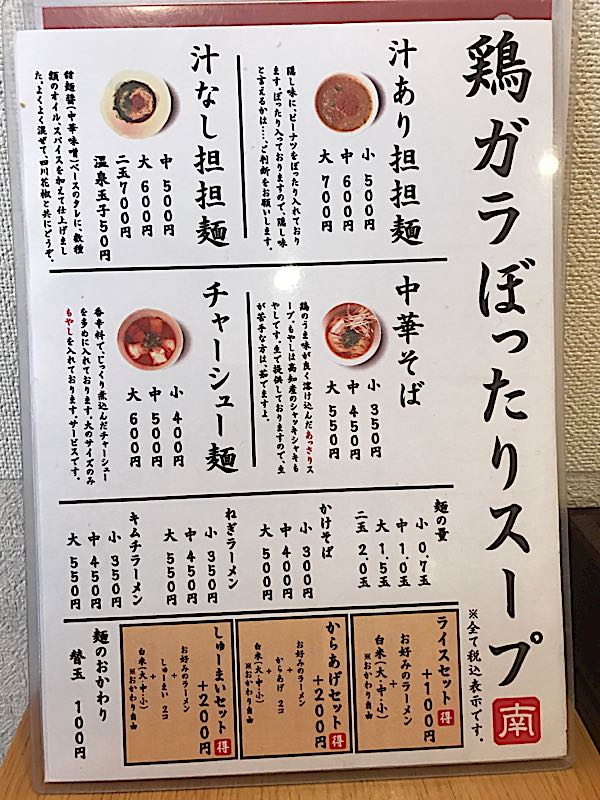 鶏ガラぼったりスープ
※全て税込表示です。
南
汁あり担担麺
小 500円
中 600円
大 700円
隠し味に、ピーナツをぼったり入れており
ます。ぼったり入っておりますので、隠し味
と言えるかは……ご判断をお願いします。
汁なし担担麺
中 500円
大 600円
二玉 700円
温泉玉子 50円
甜麺醤(中華味噌)ベースのタレに、数種
類のオイル、スパイスを加えて仕上げまし
た。よくよく混ぜて、四川花椒と共にどうぞ。
中華そば
小 350円
中 450円
大 550円
鶏のうま味が良く溶け込んだあっさりス
ープ。もやしは高知産のシャッキシャキも
やしです。生で提供しておりますので、生
が苦手な方は、茹でますよ。
チャーシュー麺
小 400円
中 500円
大 600円
香辛料で、じっくり煮込んだチャーシュー
を多めに入れております。大のサイズのみ
もやしを入れております。サービスです。
麺の量
小 0.7玉
中 1.0玉
大 1.5玉
二玉 2.0玉
かけそば
小 300円
中 400円
大 500円
ねぎラーメン
小 350円
中 450円
大 550円
キムチラーメン
小 350円
中 450円
大 550円
ライスセット 得
+100円
お好みのラーメン
+
白米(大・中・小)
※おかわり自由
からあげセット 得
+200円
お好みのラーメン
+
からあげ 2コ
+
白米(大・中・小)
※おかわり自由
しゅーまいセット 得
+200円
お好みのラーメン
+
しゅーまい 2コ
+
白米(大・中・小)
※おかわり自由
麺のおかわり
替玉 100円